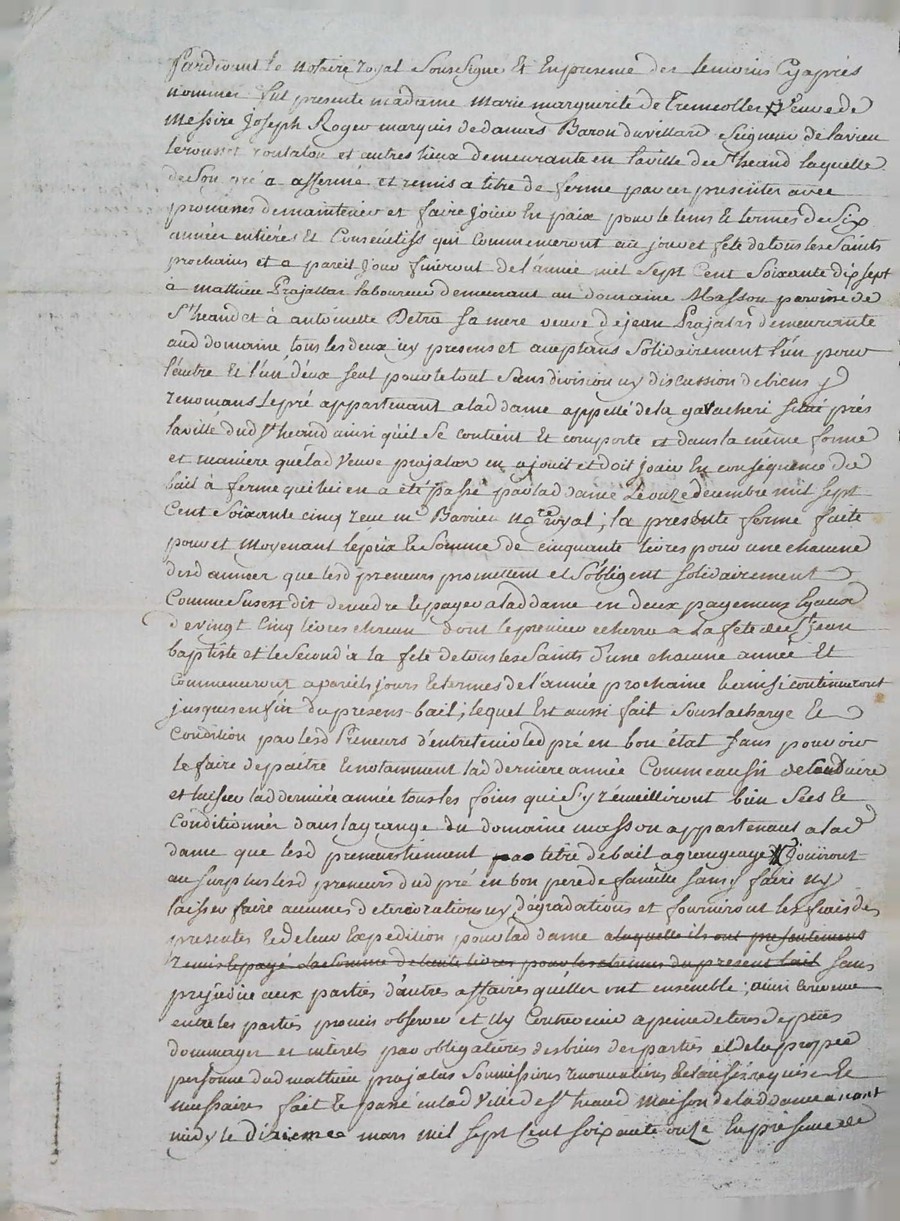 Pardevant le notaire royal soussigné et en presence des temoins cy après
nommés fut presente madame marie marguerite de Tremeolles veuve de
messire joseph Roger marquis de damas Baron du villars Seigneur de lavieu
lerousset et autres lieux demeurante en la ville de st heand laquelle
de son gré a affermé et remis a titre de ferme par ces presentes avec
promesses de maintenir et faire jouir en paix pour le tems et termes de six
année entiéres et consecutifs qui commenceront au jour et fête de tous les saints
prochains et a pareil jour finiront de l'année mil sept cent soixante dix sept
à mathieu Prajallas laboureur demeurant au domaine Masson paroisse de
st heand et à antoinette Detra sa mere veuve de jean Prajalas demeurante
aud domaine tous les deux icy presens et acceptans solidairement l'un pour
l'autre et l'un d'eux seul pour le tout sans division ny discussion de biens y
renonçans le pré appartenant a lad dame appellé de la gavacheri situé près
la ville dud st heand ainsi qu'il se contient et comporte et dans la même forme
et maniere que lad veuve prajalas en a jouit et doit jouir en conséquence du
bail à ferme qui lui en a été passé par lad dame le onze decembre mil sept
cent soixante cinq reçu me Barrieu nore royal ; la presente ferme faite
pour et moyenant le prix et somme de cinquante livres pour une chacune
desd années que lesd preneurs promettent et s'obligent solidairement
comme susest dit de rendre et payer a lad dame en deux payemens egaux
de vingt cinq livres chacun dont le premier echerra a la fête de st jean
baptiste et le second a la fête de tous les saints d'une chacune année et
commenceront a pareils jours et termes de l'année prochaine et ainsi continueront
jusques en fin du présens bail ; lequel est aussi fait sous la charge et
condition par lesd Preneurs d'entretenir led pré en bon état sans pouvoir
le faire depaitre et notamment lad derniere année comme aussi de conduire
et laisser lad derniére année tous les foins qui s'y receuilliront bien secs et
conditionnés dans la grange du domaine masson appartenans a lad
dame que lesd preneurs tiennent par titre de bail a grangeage jouiront
au surplus lesd preneurs dud pré en bon pere de famille sans y faire ny
laisser faire aucunes deteriorations ny dégradations et fourniront les frais des
presentes et de leur expedition pour lad dame a laquelle ils ont presentement
remis et payé la somme de livres pour les etrennes du present bail sans
prejudice aux parties d'autres affaires qu'elles ont ensemble ; ainsi convenu
entre les parties promis observer et n'y contrevenir a peine de tous depens
dommages et interets par obligations des biens des parties et de la proppre
personne dud mathieu prajalas soumissions renonciations et clauses requises et
necessaires fait et passé en lad ville de st heand maison de lad dame avant
midy le dixieme mars mil sept cent soixante onze en presence de